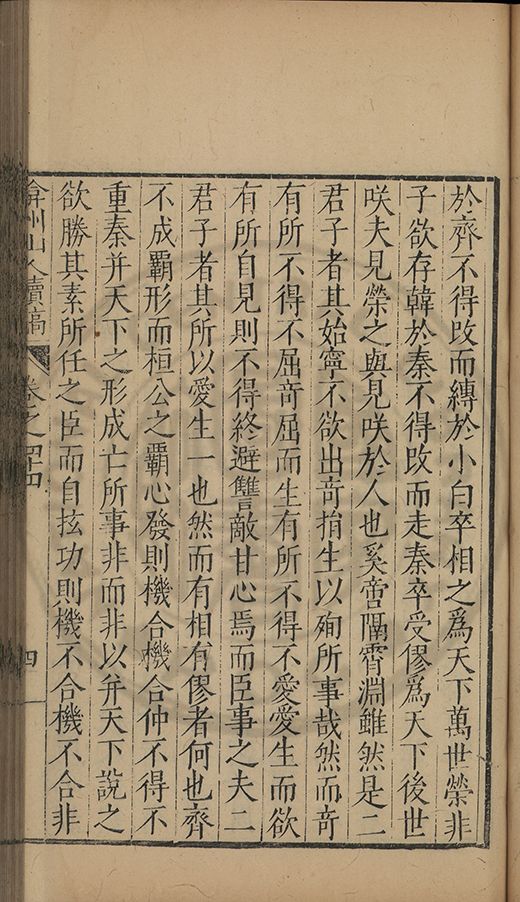 於齊不得攺而縳於小白卒相之爲天下萬世榮非
子欲存韓於秦不得攺而走秦卒受僇爲天下後世
咲夫見榮之與見咲於人也奚啻隔霄淵雖然是二
君子者其始寧不欲出竒捐生以殉所事哉然而竒
有所不得不屈竒屈而生有所不得不愛愛生而欲
有所自見則不得終避讐敵甘心焉而臣事之夫二
君子者其所以愛生一也然而有相有僇者何也齊
不成覇形而桓公之覇心發則機合機合仲不得不
重秦并天下之形成亡所事非而非以并天下說之
欲勝其素所任之臣而自抜功則機不合機不合非
弇州山人續稿
卷之
四